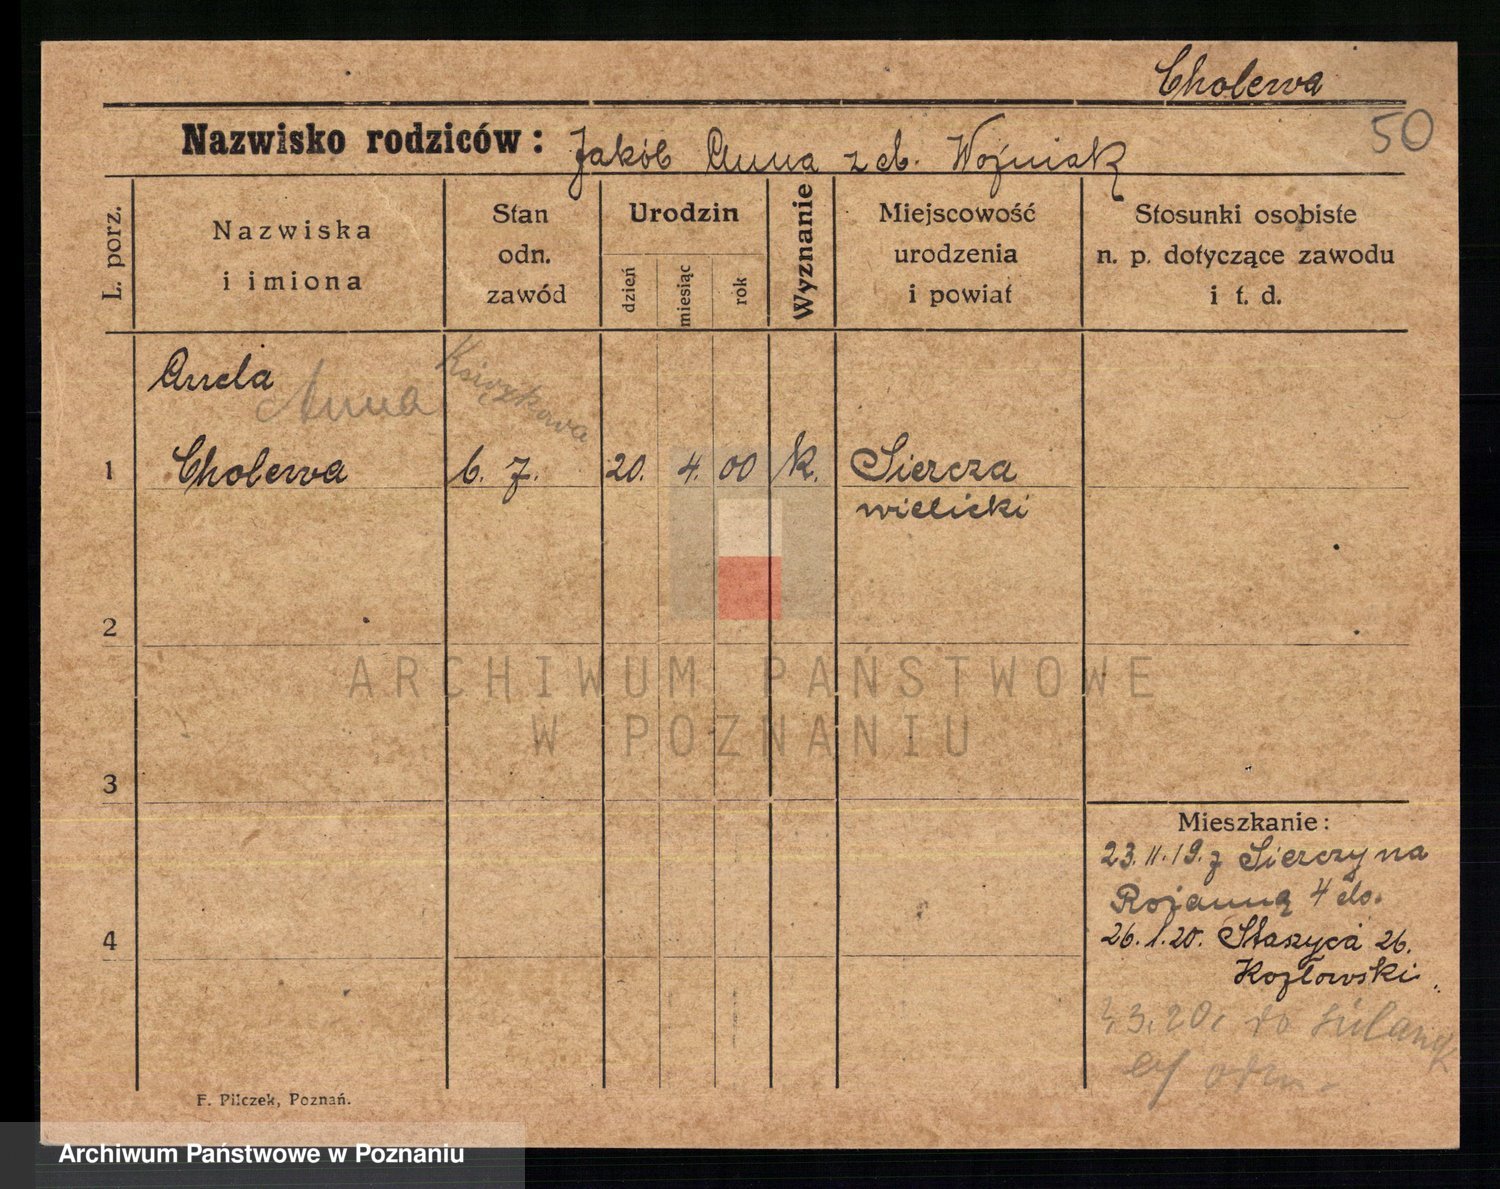 Cholewa
50
Nazwisko rodziców: Jakób Anna z d. Woźniak
L. porz.
Nazwiska
i imiona
Stan
odn.
zawód
Urodzin
dzień
miesiąc
rok
Wyznanie
Miejscowość
urodzenia
i powiat
Stosunki osobiste
n. p. dotyczące zawodu
i t. d.
Aniela
Anna
Książkowa
1 Cholewa b. z. 20. 4. 00 k. Siercza
wielicki
2
ARCHIWUM PAŃSTWOWE
W POZNANIU
3
Mieszkanie:
23. 11. 19. z Sierczy na
4 do.
4
26. 1. 20. Staszyca 26.
Kozłowski
3. 20. do
F. Pilczek, Poznań.
Archiwum Państwowe w Poznaniu